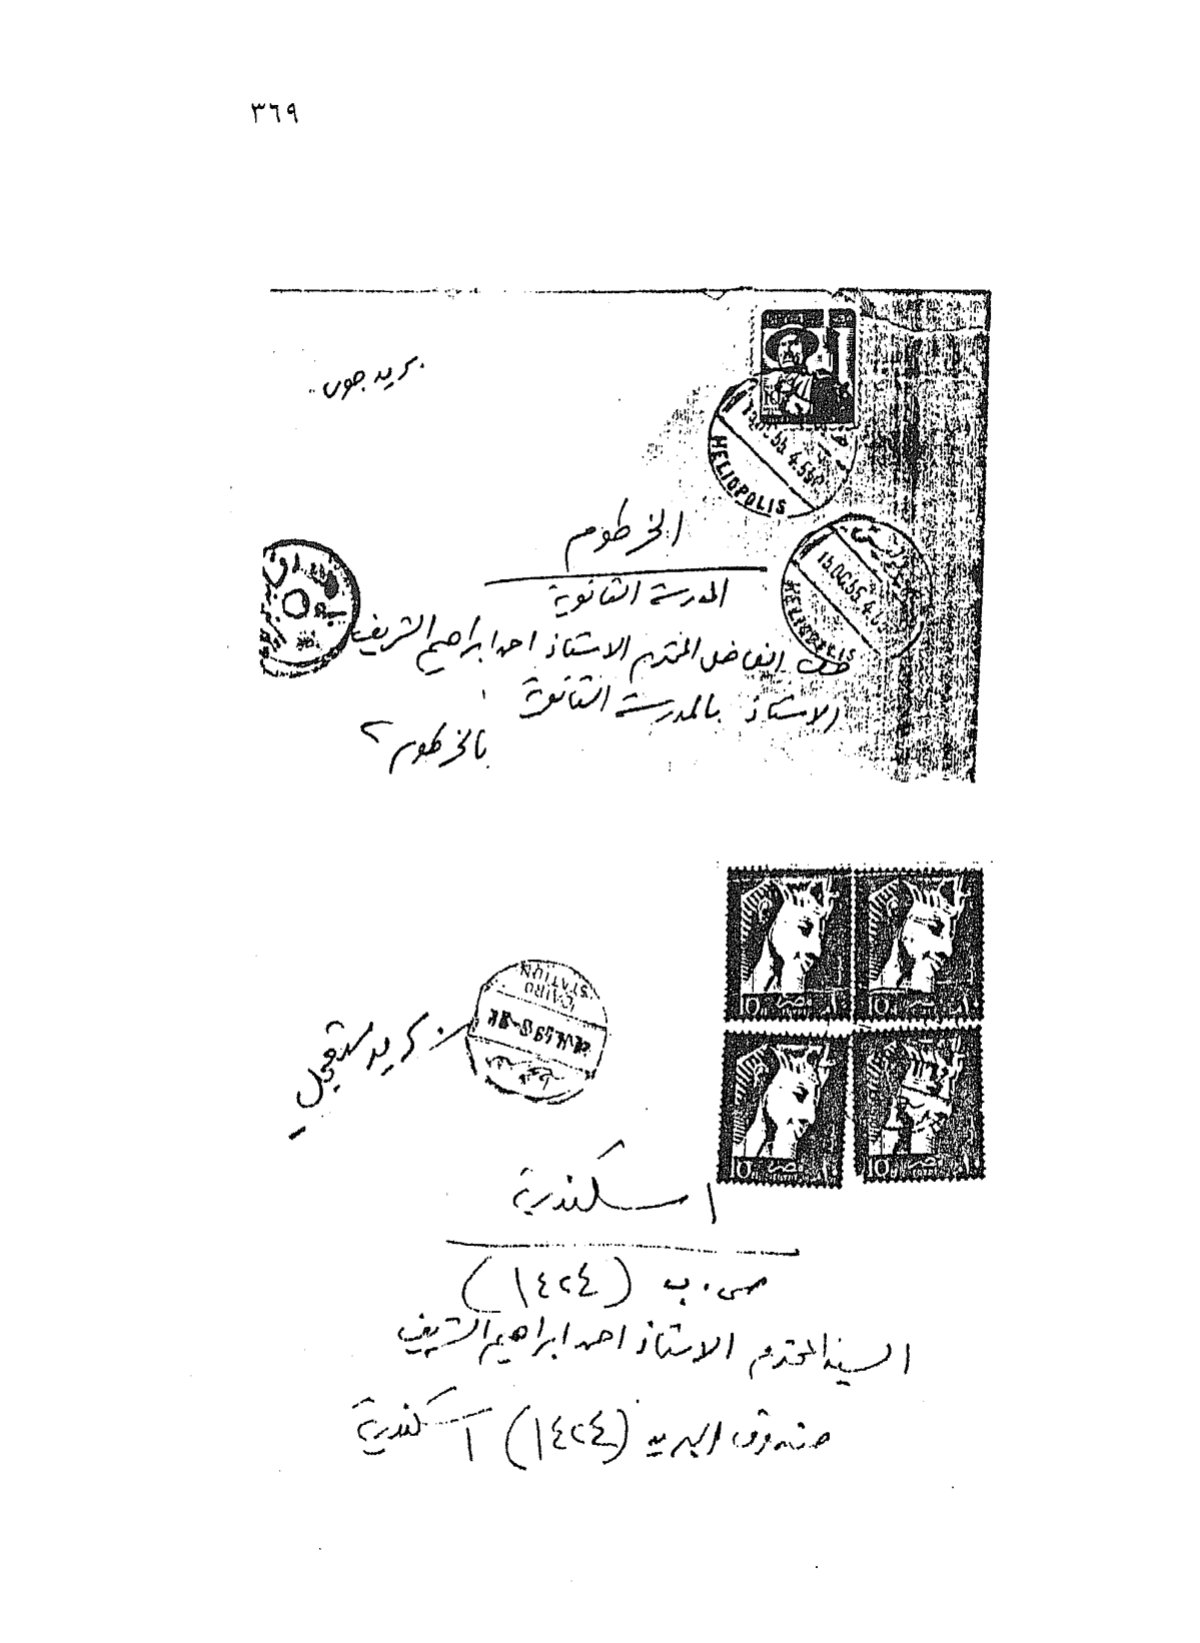 ٣٦٩
بريد جوى
HELIOPOLIS
الخرطوم
المدرسة الثانوية
HELIOPOLIS
الفاضل المحترم الاستاذ احمد ابراهيم الشريف
الاستاذ بالمدرسة الثانوية
بالخرطوم ٢
CAIRO
STATION
بريد مستعجل
10 مصر ١٠
10 مصر ١٠
10 مصر ١٠
10 مصر ١٠
اسكندرية
ص.ب (١٤٢٤)
السيد المحترم الاستاذ احمد ابراهيم الشريف
صندوق البريد (١٤٢٤) اسكندرية